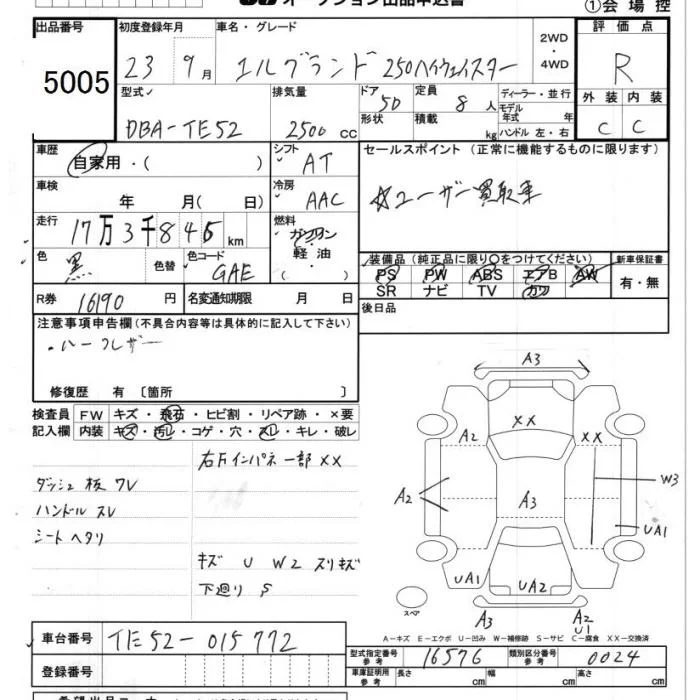 オークション出品申込書
①会場控
出品番号 初度登録年月 車名・グレード 評価点
5005 23 9月 エルグランド 250ハイウェイスター 2WD・4WD R
型式 排気量 ドア 定員 ディーラー・並行 外装 内装
DBA-TE52 2500cc 5D 8人 モデル年式 年 C C
形状 積載 kg ハンドル 左・右
車歴 自家用・( ) シフト AT セールスポイント(正常に機能するものに限ります)
車検 年 月( 日) 冷房 AAC ☆ユーザー買取車
走行 17万3千845km 燃料 ガソリン・軽油・( )
色 黒 色替 色コード GAE 装備品(純正品に限り○をつけてください) 新車保証書
PS PW ABS エアB AW 有・無
SR ナビ TV カワ
R券 16190円 名変通知期限 月 日 後日品
注意事項申告欄(不具合内容等は具体的に記入して下さい)
・ハーフレザー
修復歴 有 〔箇所 〕
検査員 FW キズ・飛石・ヒビ割・リペア跡・×要
記入欄 内装 キズ・汚レ・コゲ・穴・スレ・キレ・破レ
右Fインパネ一部XX
ダッシュ板ワレ
ハンドルスレ
シートヘタリ
キズ U W2 スリキズ
下廻り S
A3
XX
A2 XX
W3
A2 A3
UA1
UA1 UA2
スペア A3 A2
U1
A-キズ E-エクボ U-凹み W-補修跡 S-サビ C-腐食 XX-交換済
車台番号 TE52-015772
型式指定番号 参考 16576 類別区分番号 参考 0024
登録番号 車庫証明用 参考 長さ cm 幅 cm 高さ cm